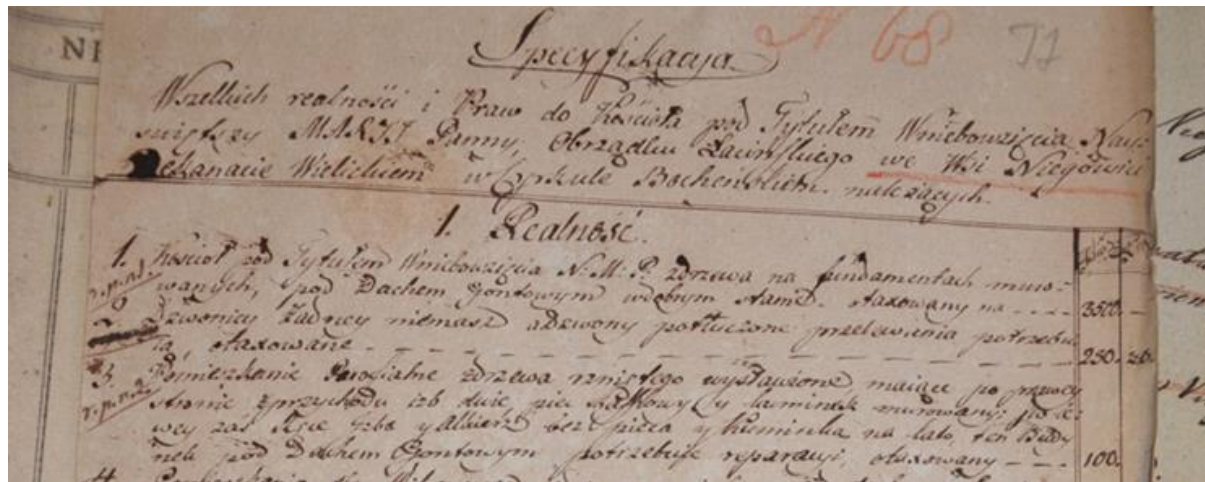 N
Specyfikacya
N 68
Wszelkich realności i Praw do Kościoła pod Tytułem Wniebowzięcia Nay:
swiętszey MARYI Panny, Obrządku Łacińskiego we Wsi Niegowici
Dekanacie Wielickim w Cyrkule Bocheńskim należących.
1. Realność.
1. Kościoł pod Tytułem Wniebowzięcia N: M: P: zdrzewa na fundamentach muro:
wanych, pod Dachem Gontowym wdobrym stanie otaxowany na - - - - 3500. -
2. Dzwonicy żadney niemasz a dzwony potłuczone przelewania potrzebu
ią, otaxowane - - - - - - - - - - 250. -
3. Pomieszkanie zdrzewa rzniętego wystawione maiące po prawey
stronie zprzychodu izb dwie piec kaflowy y kominek murowany; po le:
wey zaś izba y Alkierz bez pieca y kominka na lato, ten Budy
nek pod Dachem Gontowym potrzebuie reparacyi, otaxowany - - - 100.
4.